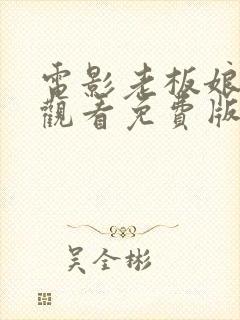 電影老板娘
觀看免費版
吴全彬